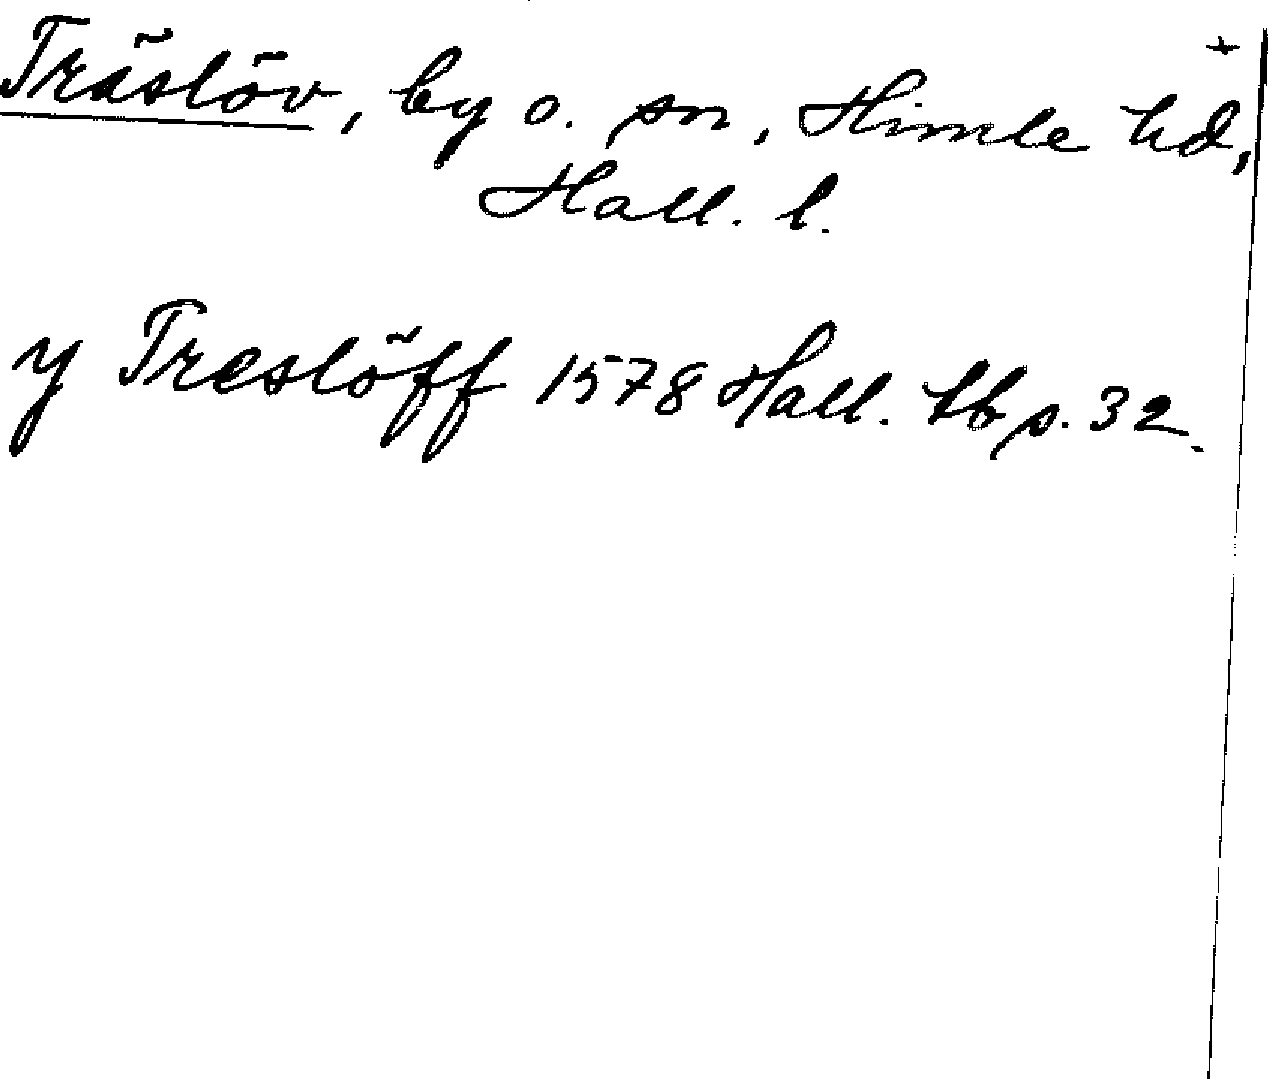 +
Träslöv, by o. sn, Himle hd,
Hall. l.
y Treslöff 1578 Hall. tb p. 32.